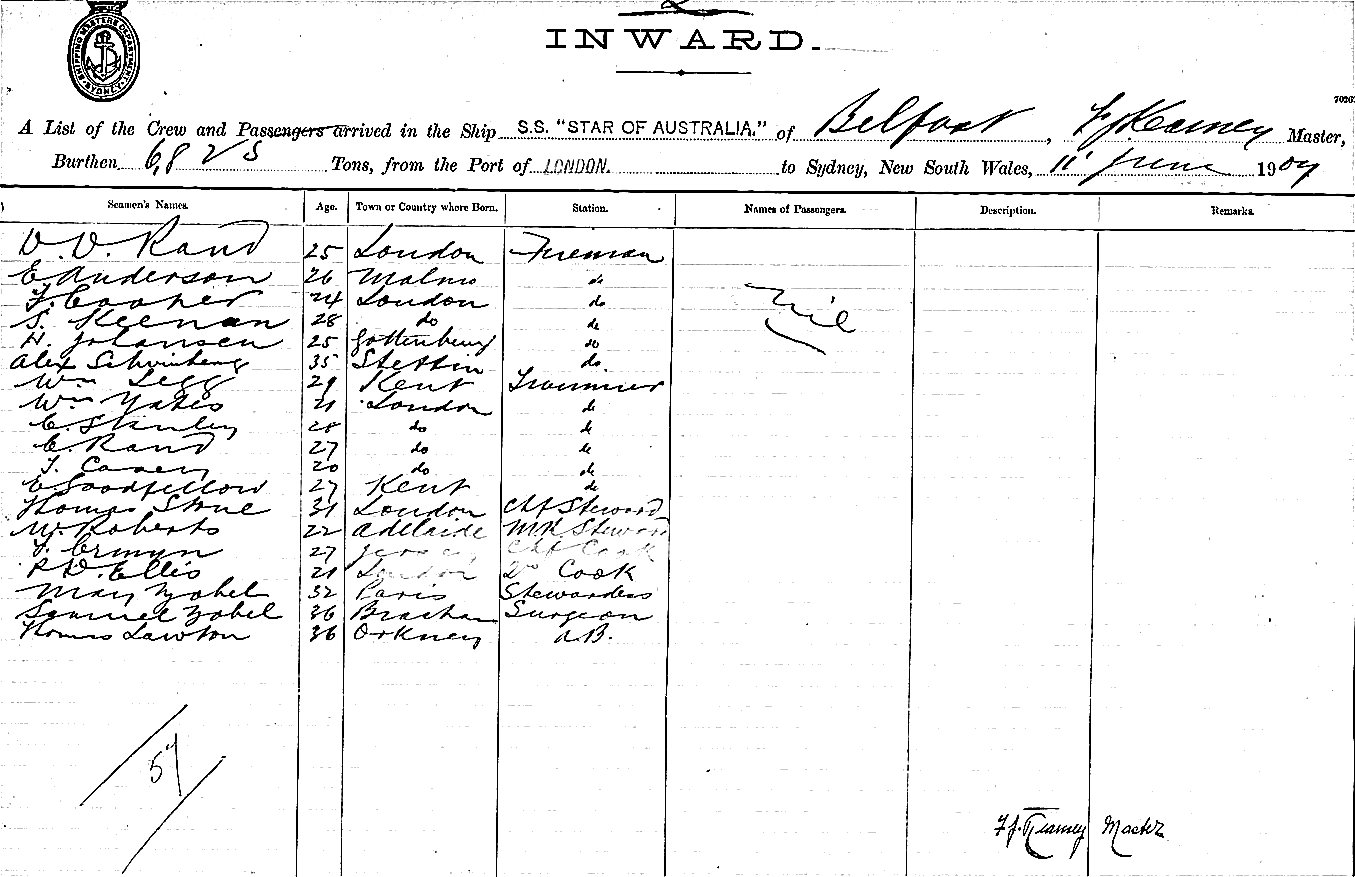 SHIPPING MASTERS DEPARTMENT SYDNEY
2
INWARD.
7020
A List of the Crew and Passengers arrived in the Ship S.S. "STAR OF AUSTRALIA." of Belfast, F J Kearney Master,
Burthen 6,825 Tons, from the Port of LONDON. to Sydney, New South Wales, 11 June 1909
Seamen's Names. Age. Town or Country where Born. Station. Names of Passengers. Description. Remarks.
D. D. Rand 25 London Fireman
E Anderson 26 Malmo do
F. Cooper 24 London do
S. Keenan 28 do do
H. Johansen 25 Gottenburg do
Alex 35 Stettin do
Wm Legg 29 Kent Trimmer
Wm Yates 21 London do
C. Stanley 28 do do
C. Rand 27 do do
T. Casey 20 do do
E Goodfellow 27 Kent do
Thomas Stone 31 London Chf Steward
W. Roberts 22 Adelaide Steward
F. Ermyn 27 Jersey Chf Cook
P. D. Ellis 21 London 2nd Cook
May Zobel 32 Paris Stewardess
Samuel Zobel 36 Surgeon
Thomas Lawton 36 Orkney A.B.
Nil
57
F J. Kearney Master